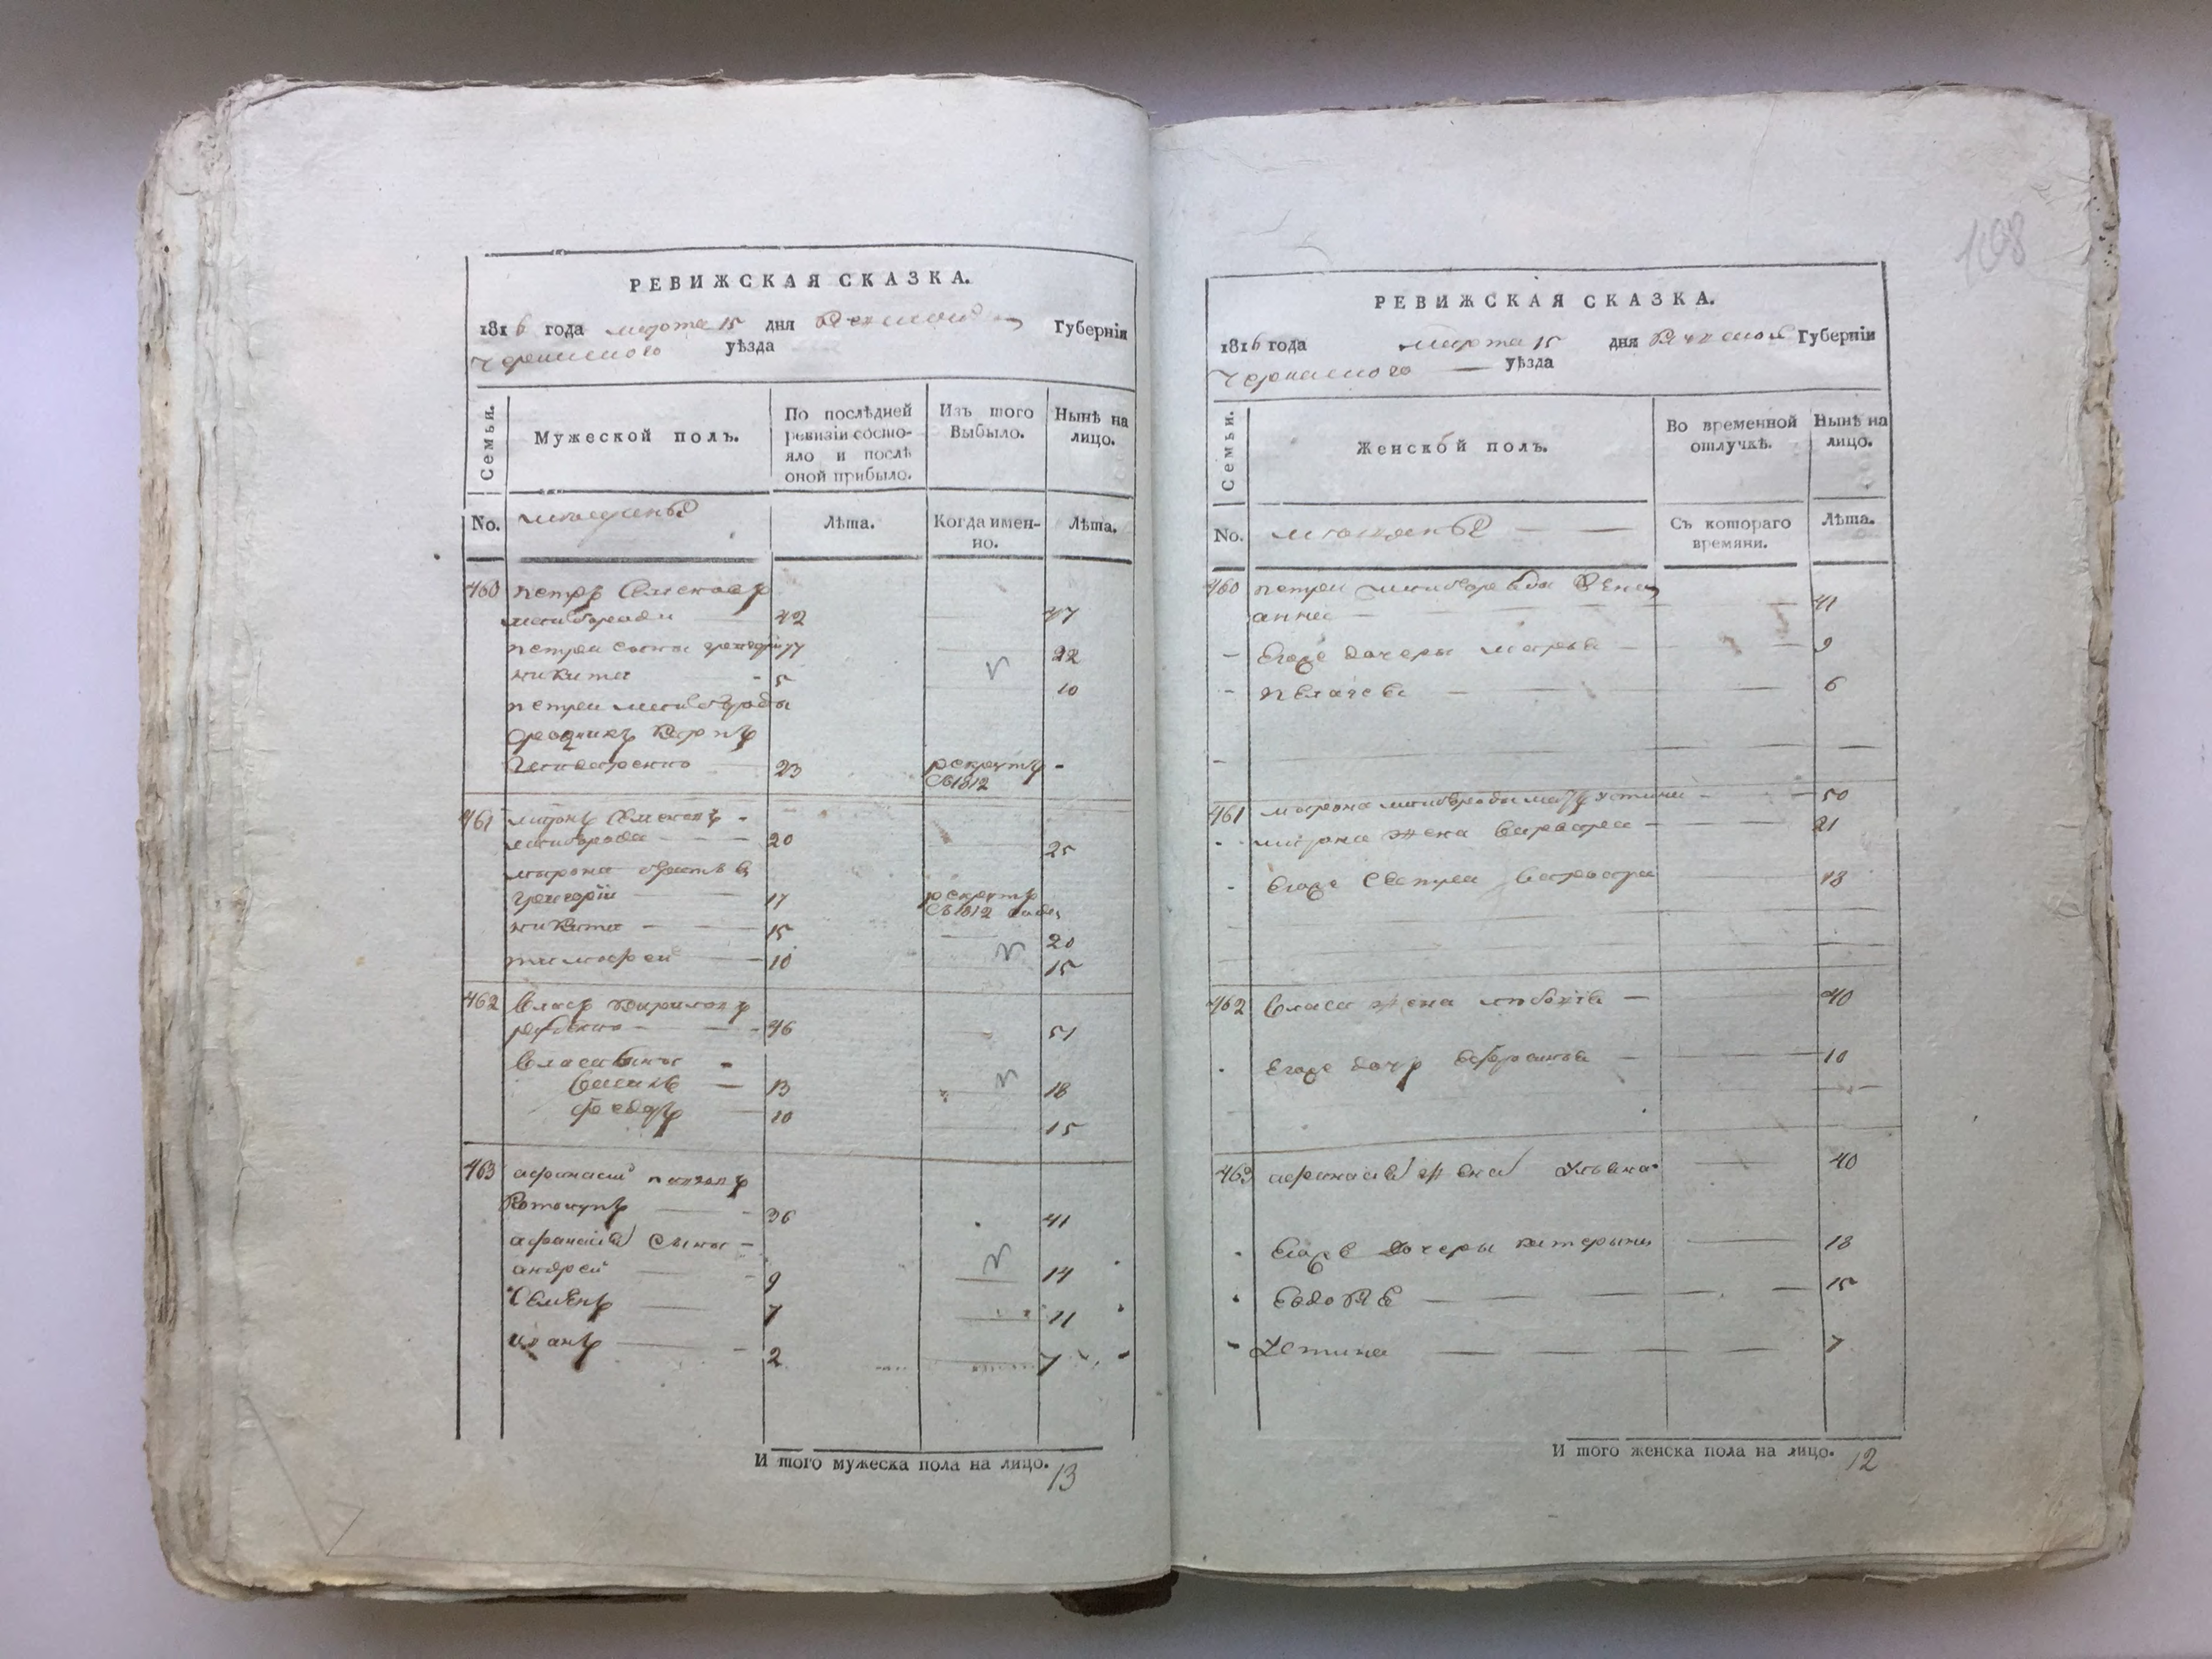 РЕВИЖСКАЯ СКАЗКА.
1816 года марта 15 дня Киевской Губерніи
Черкаского уѣзда
Семьи.
Мужеской полъ.
По послѣдней ревизіи состо-
яло и послѣ
оной прибыло.
Изъ того
Выбыло.
Нынѣ на
лицо.
No.
мещаны
Лѣта.
Когда имен-
но.
Лѣта.
460 петръ
42 47
петра сыны григорій 17 22
никита 5 10
петра
карпъ
23 рекрутъ
въ 1812
461 миронъ
20 25
мирона братья
григорій 17 рекрутъ
въ 1812
никита 15 20
тимофей 10 15
462 власъ кириловъ
46 51
власа сыны
василь 13 18
федоръ 10 15
463 афанасій павловъ
36 41
афанасія сыны
андрей 9 14
семенъ 7 11
иванъ 2 7
И того мужеска пола на лицо. 13
108
РЕВИЖСКАЯ СКАЗКА.
1816 года марта 15 дня Киевской Губерніи
Черкаского уѣзда
Семьи.
Женской полъ.
Во временной
отлучкѣ.
Нынѣ на
лицо.
No.
мещаны
Съ котораго
времяни.
Лѣта.
460 петра жена
анна 41
Егоже дочеры марья 9
пелагея 6
461 мирона 50
мирона жена варвара 21
Егоже сестра варвара 18
462 власа жена 40
Егоже дочь 10
463 афанасія жена ульяна 40
Егоже дочеры катерына 18
Евдокѣя 15
устина 7
И того женска пола на лицо. 12